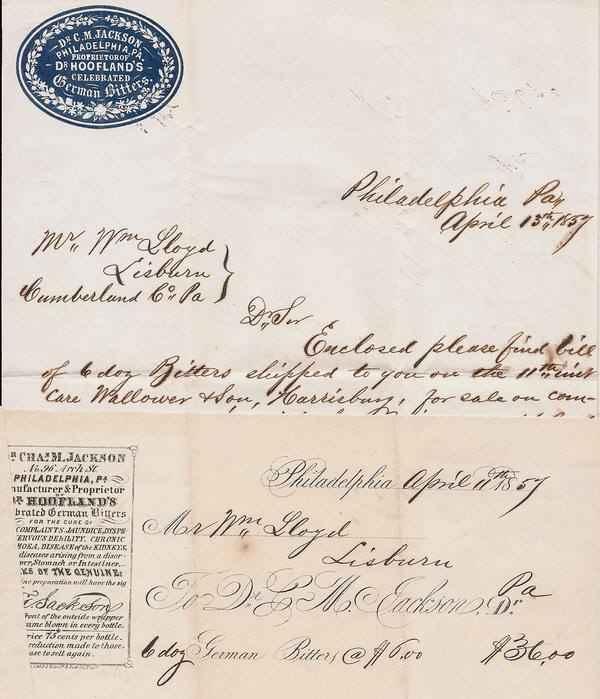 DR. C. M. JACKSON,
PHILADELPHIA, PA.
PROPRIETOR OF
DR. HOOFLAND'S
CELEBRATED
German Bitters.
Philadelphia Pa,,
April 13th,, 1857
Mr,, Wm Lloyd
Lisburn
Cumberland Co,, Pa
Dr,, Sir
Enclosed please find bill
of 6 doz Bitters shipped to you on the 11th,, inst
Care Wallower & Son, Harrisburg, for sale on com-
CHAs. M. JACKSON
No. 96 Arch St.
PHILADELPHIA, Pa
nufacturer & Proprietor
OF
DR HOOFLAND'S
brated German Bitters
FOR THE CURE OF
COMPLAINTS, JAUNDICE, DYSPE
ERVOUS DEBILITY, CHRONIC
HOEA, DISEASE of the KIDNEYS,
diseases arising from a disor-
ver, Stomach or Intestines.
KS OF THE GENUINE:
ne preparation will have the sig
Jackson
front of the outside wrapper
ame blown in every bottle.
rice 75 cents per bottle.
reduction made to those
ase to sell again.
Philadelphia April 11th 1857
Mr Wm Lloyd
Lisburn
Pa
To Dr. C. M. Jackson, Dr.
6 doz German Bitters @ $6.00 $36.00